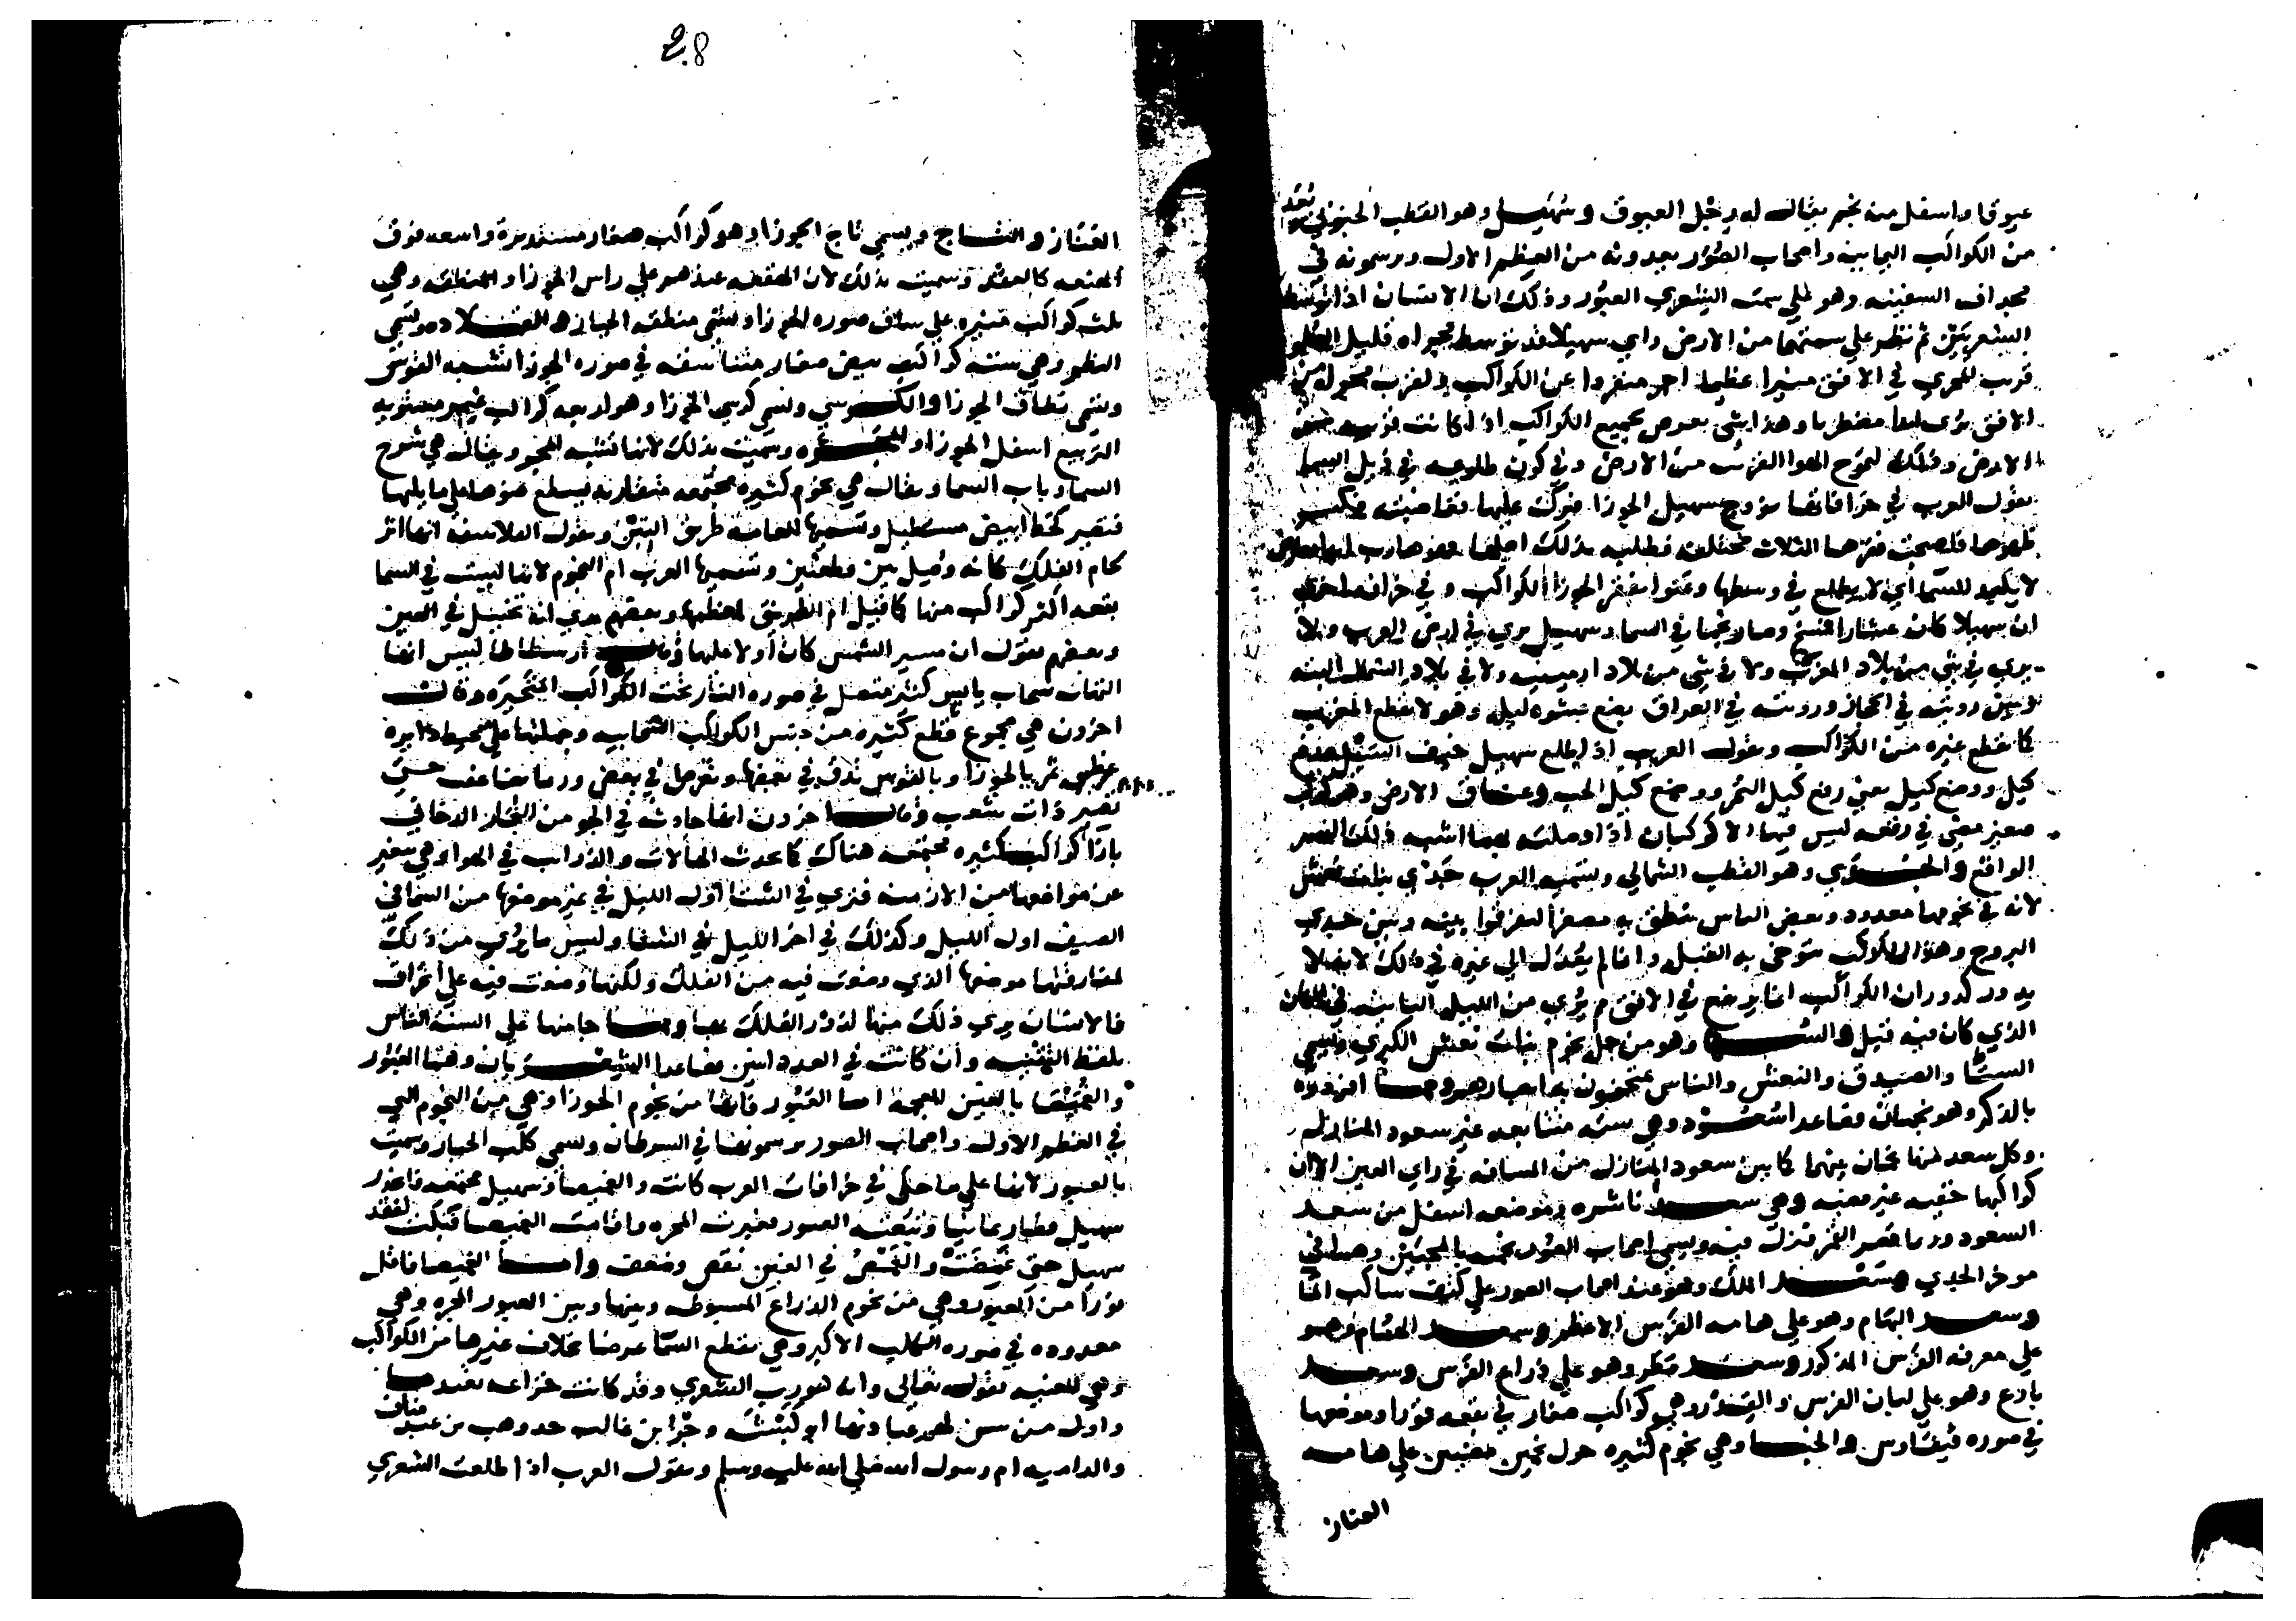 عيوقا واسفل منه نجم يقال له رجل العيوق وسهيل وهو القطب الجنوبي يعد
من الكواكب اليمانيه واصحاب الصور يعدونه من العظم الاول ويرسمونه في
مجداف السفينه وهو علي سمت الشعري العبور وذلك ان الانسان اذا
الشعريتين ثم نظر علي سمتهما من الارض راي سهيلا قد توسط مجراه قليل
قريب المجري في الافق منيرا عظيما احمر منفردا عن الكواكب ولقرب مجراه من
الافق يري ابدا مضطربا وهذا شي يعرض لجميع الكواكب اذا كانت قريبه من
الارض وذلك لتموج الهوا القريب من الارض وفي كون طلوعه في ذيل السما
يقول العرب في خرافاتها تزوج سهيل الجوزا فبرك عليها فكسر
ظهرها فاصبحت فقرها الثلاث مختلفه فطلبه بذلك اهلها فهو هارب
لا يكبد السما اي لا يطلع في وسطها وعنوا بفقر الجوزا الكواكب وفي خرافه اخري
ان سهيلا كان عشارا فمسخ وصار نجما في السما وسهيل يري في ارض العرب ولا
يري في شي من بلاد المغرب ولا في شي من بلاد ارمينيه ولا في بلاد الشمال البته
وبين رويته في الحجاز ورويته في العراق بضع عشره ليله وهو لا يقطع المغرب
كما يقطع غيره من الكواكب ويقول العرب اذا طلع سهيل خيف السيل
كيل ووضع كيل يعني رفع كيل التمر ووضع كيل الحب وعناق الارض وهو كوكب
صغير مضي في رفعه ليس فيها الا كوكبان اذا اوصلته بهما اشبه ذلك النسر
الواقع والجدي وهو القطب الشمالي وتسميه العرب جدي بنات نعش
لانه في نجومها معدود وبعض الناس ينطق به مصغرا ليفرقوا بينه وبين جدي
البروج وهذا الكوكب يتوخي به القبله وانما لم يعدل الي غيره في ذلك لانه لا
يدور كدوران الكواكب انما يرتفع في الافق ثم يري من الليل الثانيه في المكان
الذي كان فيه قبل والسها وهو من جل نجوم بنات نعش الكبري ويسمي
الستا والصيدق والنعش والناس يمتحنون به ابصارهم ومما افردوه
بالذكر وهو نجمان فصاعدا السعود وهي سته متتابعه غير سعود المنازل
وكل سعد منها نجمان بينهما كما بين سعود المنازل من المسافه في راي العين الا ان
كواكبها خفيه غير مضيه وهي سعد ناشره وموضعه اسفل من سعد
السعود وربما قصر القمر فنزل فيه ويسمي اصحاب الصور نجمه بالمحبين وهما في
موخر الجدي وسعد الملك وهو عند اصحاب الصور علي كتف ساكب الما
وسعد البهام وهو علي هامه الفرس الاعظم وسعد الهمام وهو
علي معرفه الفرس المذكور وسعد مطر وهو علي ذراع الفرس وسعد
بارع وهو علي لبان الفرس والقدر وهي كواكب صغار في بقعه نورا وموضعها
في صوره قيقاوس والخبا وهي نجوم كثيره حول نجمين مضيين علي هامه
العناز
28
العناز والتاج ويسمي تاج الجوزا وهو كواكب صغار مستديره واسعه فوق
الهقعه كالعقد وسميت بذلك لان الهقعه عندهم علي راس الجوزا والمنطقه وهي
ثلثه كواكب منيره علي ساق صوره الجوزا وتسمي منطقه الجبار والقلاده وتسمي
النظم وهي سته كواكب بيض صغار متناسقه في صوره الجوزا تشبه القوس
وتسمي نطاق الجوزا والكرسي ويسمي كرسي الجوزا وهو اربعه كواكب غير مستويه
التربيع اسفل الجوزا والمجره وسميت بذلك لانها تشبه المجر ويقال هي شرج
السما وباب السما ويقال هي نجوم كثيره مجتمعه متقاربه يسلع ضوها علي ما يليها
فتصير كخط ابيض مستطيل وتسميها العامه طريق التبن ويقول الفلاسفه انها اثر
لحام الفلك كانه وصل بين قطعتين وتسميها العرب ام النجوم لانها ليست في السما
بقعه اكثر كواكب منها كما قيل ام الطريق لعظمها وبعضهم يري انه تخييل في العين
وبعضهم يقول ان مسير الشمس كان اولا عليها وقال ارسطاطاليس انها
التهاب سحاب يابس كثير متصل في صوره النار تحت الكواكب المتحيره وقال
اخرون هي مجموع قطع كثيره من جنس الكواكب السحابيه وجملتها علي محيط دايره
عظمي تمر بالجوزا وبالقوس تدق في بعضها وتعرض في بعض وربما تضاعف حتي
تصير ذات شعب وقال اخرون انها حادثه في الجو من البخار الدخاني
بازا كواكب كثيره مجتمعه هناك كما تحدث الهالات والذوايب في الهوا وهي تتغير
عن مواضعها من الازمنه فتري في الشتا اول الليل في غير موضعها من السما في
الصيف اول الليل وكذلك في اخر الليل في الشتا وليس ما يري من ذلك
لمفارقتها موضعها الذي وضعت فيه من الفلك ولكنها وضعت فيه علي انحراف
فالانسان يري ذلك منها لدور الفلك بها ومما جا منها علي السنه الناس
بلفظ التثنيه وان كانت في العدد اثنين فصاعدا الشعريان وهما العبور
والغميصا بالغين المعجمه اما العبور فانها من نجوم الجوزا وهي من النجوم التي
في العظم الاول واصحاب الصور يرسمونها في السرطان وتسمي كلب الجبار وسميت
بالعبور لانها علي ما حكي في خرافات العرب كانت والغميصا وسهيل مجتمعه فانحدر
سهيل فصار يمانيا وتبعته العبور فعبرت المجره واقامت الغميصا فبكت لفقد
سهيل حتي غمصت والغمص في العين نقص وضعف واما الغميصا فاقل
نورا من العبور وهي من نجوم الذراع المبسوطه وبينها وبين العبور المجره وهي
معدوده في صوره الكلب الاكبر وهي تقطع السما عرضا بخلاف غيرها من الكواكب
وهي المعنيه بقوله تعالي وانه هو رب الشعري وقد كانت خزاعه تعبدها
واول من سن لهم عبادتها ابو كبشه وجزا بن غالب جد وهب بن عبد مناف
والد امنه ام رسول الله صلي الله عليه وسلم ويقول العرب اذا طلعت الشعري